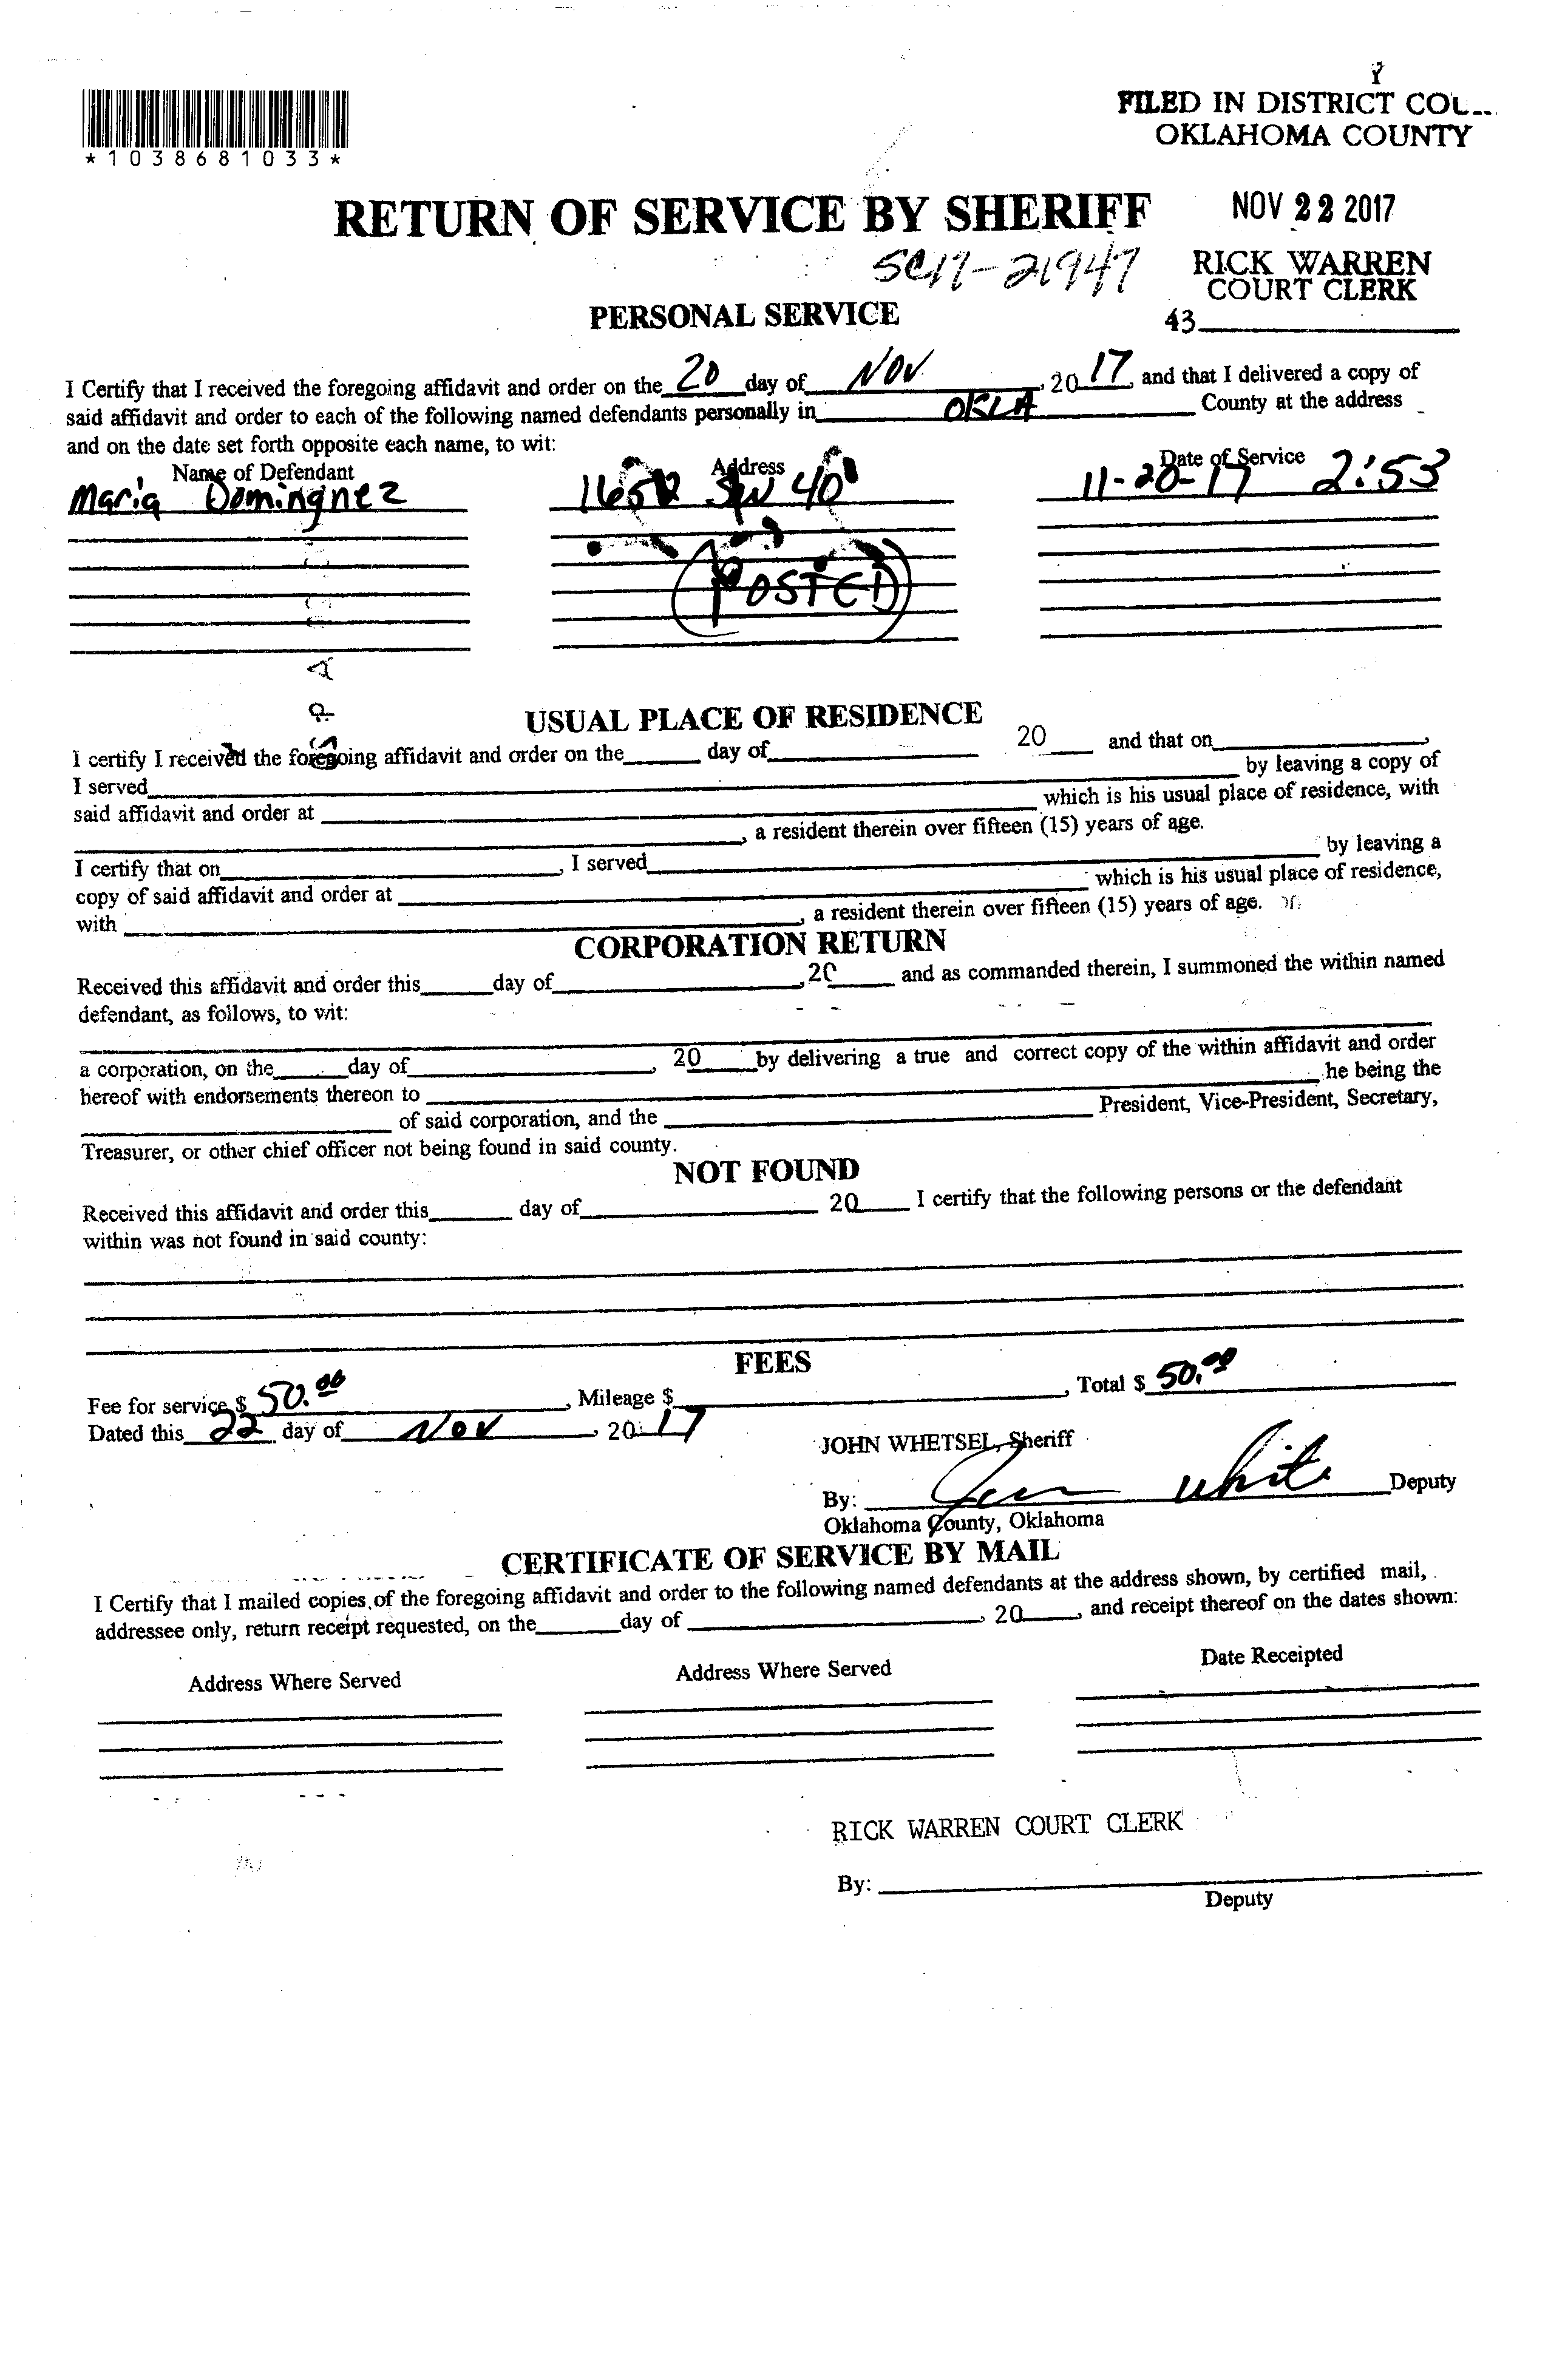 FILED IN DISTRICT COU
OKLAHOMA COUNTY
*1038681033*
RETURN OF SERVICE BY SHERIFF
NOV 22 2017
SC17-21947
RICK WARREN
COURT CLERK
PERSONAL SERVICE
43
I Certify that I received the foregoing affidavit and order on the 20 day of NOV, 2017, and that I delivered a copy of
said affidavit and order to each of the following named defendants personally in OKLA County at the address
and on the date set forth opposite each name, to wit:
Name of Defendant Address Date of Service
Maria Dominguez SW 40 11-20-17 2:53
(POSTED)
USUAL PLACE OF RESIDENCE
I certify I received the foregoing affidavit and order on the day of 20 and that on ,
I served by leaving a copy of
said affidavit and order at which is his usual place of residence, with
, a resident therein over fifteen (15) years of age.
I certify that on , I served by leaving a
copy of said affidavit and order at which is his usual place of residence,
with , a resident therein over fifteen (15) years of age.
CORPORATION RETURN
Received this affidavit and order this day of , 20 and as commanded therein, I summoned the within named
defendant, as follows, to wit:
a corporation, on the day of , 20 by delivering a true and correct copy of the within affidavit and order
hereof with endorsements thereon to he being the
of said corporation, and the President, Vice-President, Secretary,
Treasurer, or other chief officer not being found in said county.
NOT FOUND
Received this affidavit and order this day of 20 I certify that the following persons or the defendant
within was not found in said county:
FEES
Fee for service $ 50.00, Mileage $ , Total $ 50.00
Dated this 22 day of NOV, 2017
JOHN WHETSEL, Sheriff
By: White Deputy
Oklahoma County, Oklahoma
CERTIFICATE OF SERVICE BY MAIL
I Certify that I mailed copies of the foregoing affidavit and order to the following named defendants at the address shown, by certified mail,
addressee only, return receipt requested, on the day of , 20 , and receipt thereof on the dates shown:
Address Where Served Address Where Served Date Receipted
RICK WARREN COURT CLERK
By:
Deputy